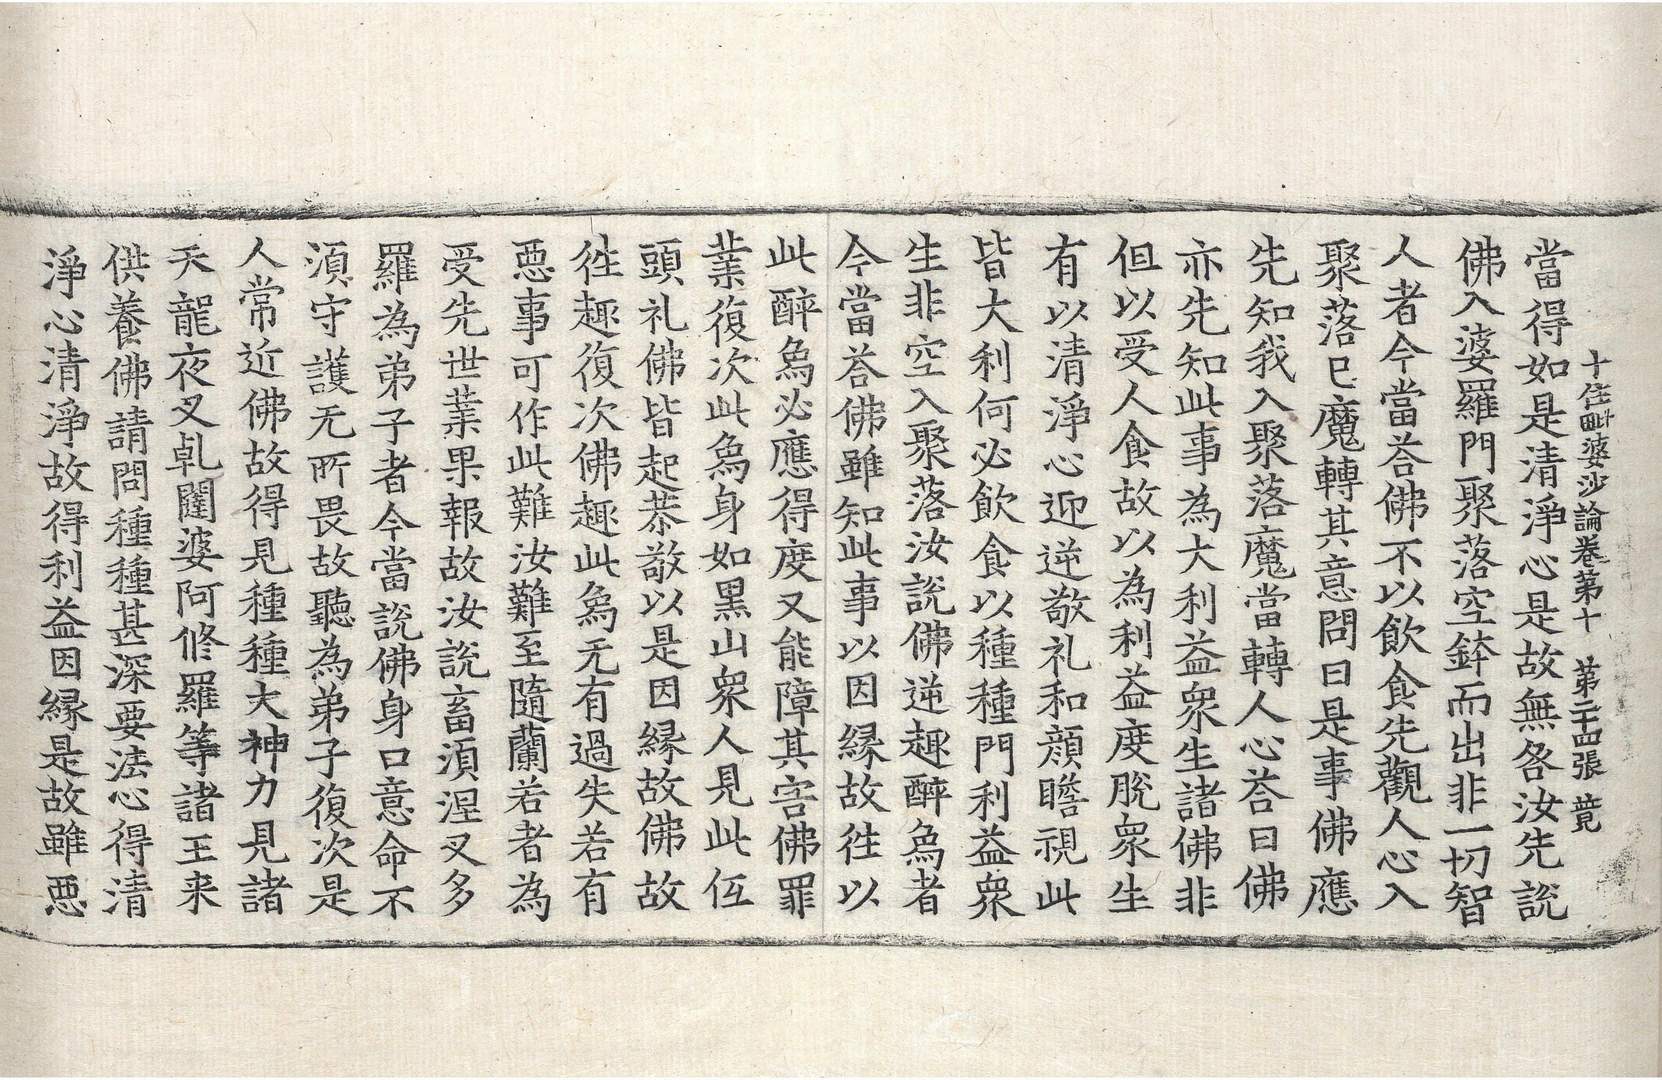 十住毗婆沙論卷第十 第二十四張 竟
當得如是清淨心是故無咎汝先說
佛入婆羅門聚落空鉢而出非一切智
人者今當荅佛不以飮食先觀人心入
聚落已魔轉其意問曰是事佛應
先知我入聚落魔當轉人心荅曰佛
亦先知此事為大利益衆生諸佛非
但以受人食故以為利益度脫衆生
有以清淨心迎逆敬礼和顔瞻視此
皆大利何必飮食以種種門利益衆
生非空入聚落汝說佛逆趣醉象者
今當荅佛雖知此事以因緣故往以
此醉象必應得度又能障其害佛罪
業復次此象身如黑山衆人見此伍
頭礼佛皆起恭敬以是因緣故佛故
往趣復次佛趣此象无有過失若有
惡事可作此難汝難至隨蘭若者為
受先世業果報故汝說畜湏涅叉多
羅為弟子者今當說佛身口意命不
湏守護无所畏故聽為弟子復次是
人常近佛故得見種種大神力見諸
天龍夜叉乹闥婆阿修羅等諸王来
供養佛請問種種甚深要法心得清
淨心清淨故得利益因緣是故雖惡